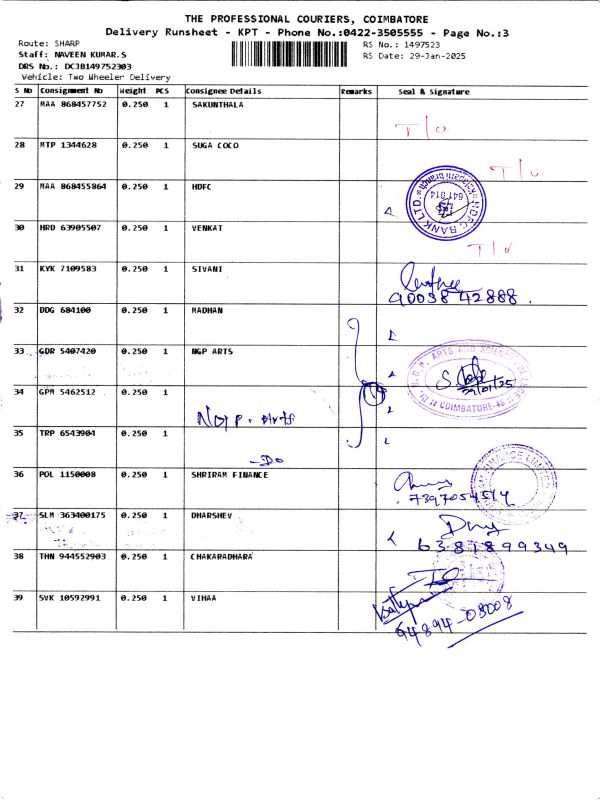 THE PROFESSIONAL COURIERS, COIMBATORE
Delivery Runsheet - KPT - Phone No.:0422-3505555 - Page No.:3
Route: SHARP
RS No.: 1497523
Staff: NAVEEN KUMAR.S
RS Date: 29-Jan-2025
DRS No.: DCJB149752303
Vehicle: Two Wheeler Delivery
S No Consignment No Weight PCS Consignee Details Remarks Seal & Signature
27 MAA 868457752 0.250 1 SAKUNTHALA
T/o
28 MTP 1344628 0.250 1 SUGA COCO
T/o
29 MAA 868455864 0.250 1 HDFC
HDFC BANK LTD.
641 014
30 HRD 63905507 0.250 1 VENKAT
T/o
31 KYK 7109583 0.250 1 SIVANI
90038 42888.
32 DDG 684100 0.250 1 MADHAN
33 GDR 5407420 0.250 1 NGP ARTS
ARTS AND SCIENCE
29/01/25
COIMBATORE-48
34 GPM 5462512 0.250 1
NGP. Arts
35 TRP 6543904 0.250 1
-Do
36 POL 1150008 0.250 1 SHRIRAM FINANCE
FINANCE LIMITED
7397054514
37 SLM 363400175 0.250 1 DHARSHEV
6381899349
38 THN 944552903 0.250 1 CHAKARADHARA
39 SVK 10592991 0.250 1 VIHAA
94894-08008